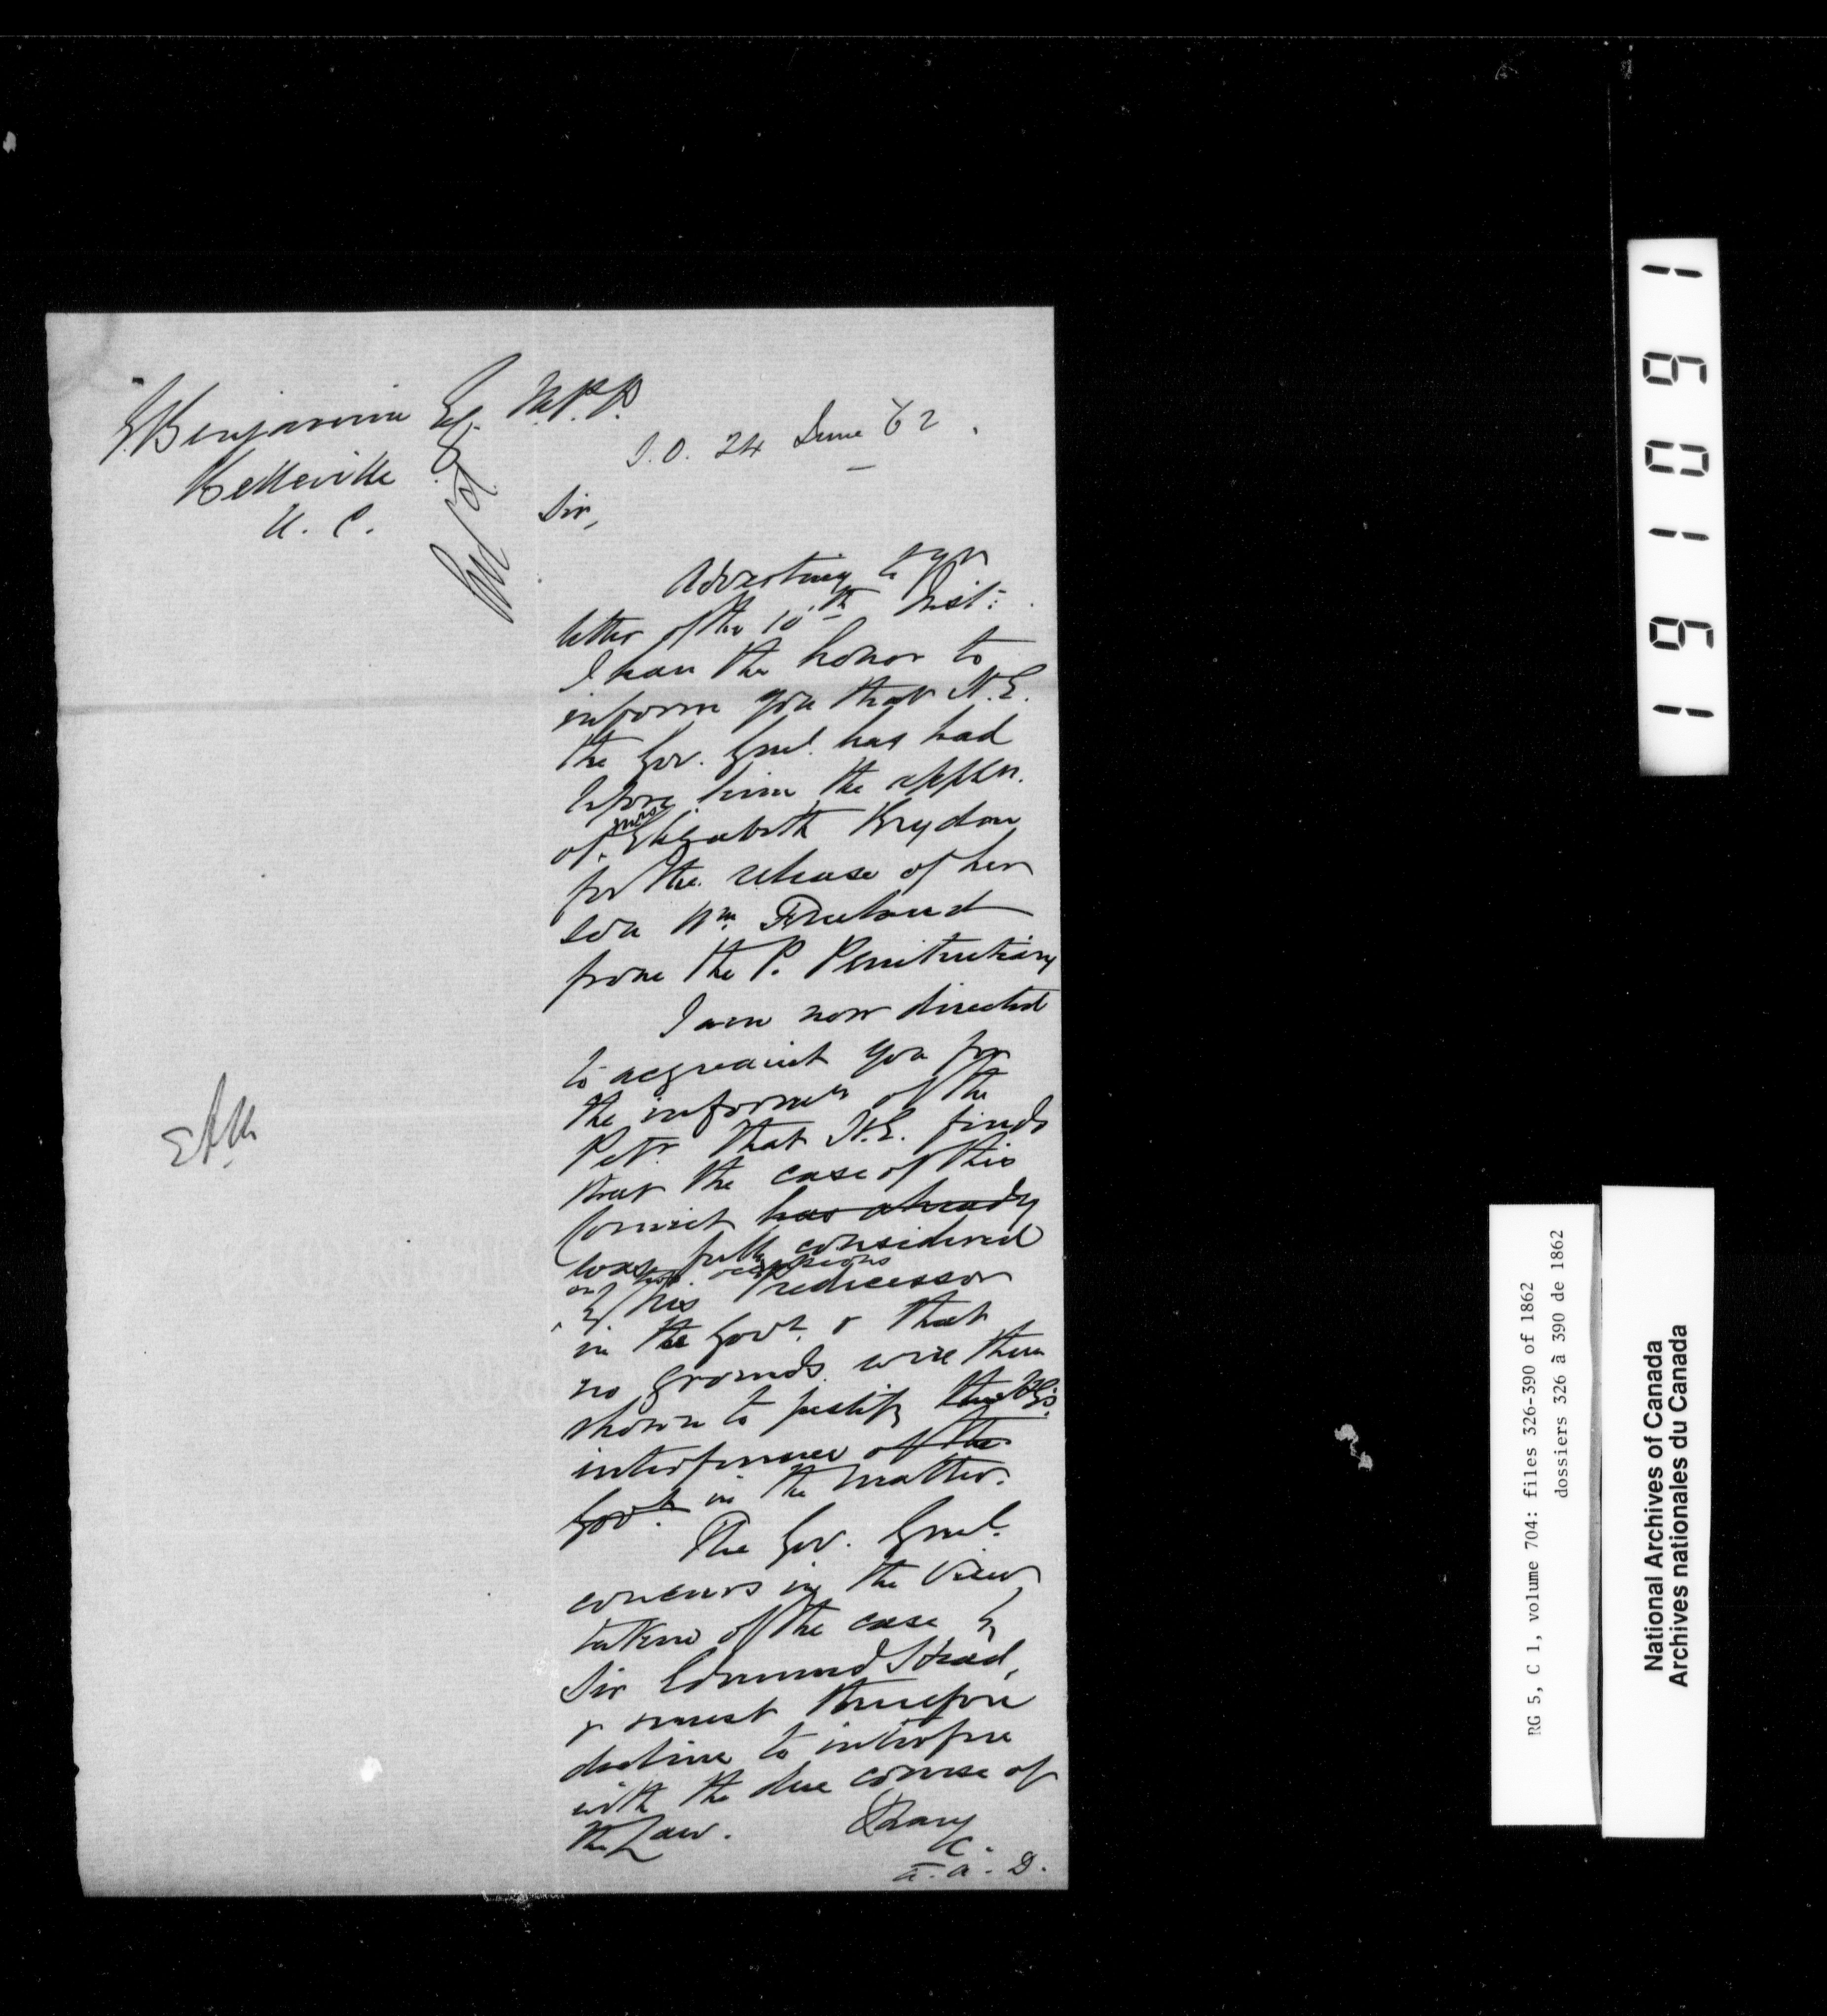 G. Benjamin Esq. M.P.P.
Belleville
U. C.
S.O. 24 June 62.
Sir,
Adverting to yr
letter of the 10th Inst:
I have the honor to
inform you that H.E.
the Gov. Genl. has had
before him the applen.
of Mrs Elizabeth Brydon
for the release of her
son Wm. Freeland
from the P. Penitentiary
I am now directed
to acquaint you for
the informn of the
Petr. that H.E. finds
that the case of this
Convict has already
was fully considered
on two occasions
by his Predecessor
in the Govt. & that
no grounds were then
shown to justify the H.E's.
interference of the
Govt. in the matter.
The Gov. Genl.
concurs in the view
taken of the case by
Sir Edmund Head,
& must therefore
decline to interfere
with the due course of
the Law.
I have
&c.
E.A.M.
RG 5, C 1, volume 704: files 326-390 of 1862
dossiers 326 à 390 de 1862
National Archives of Canada
Archives nationales du Canada
191091